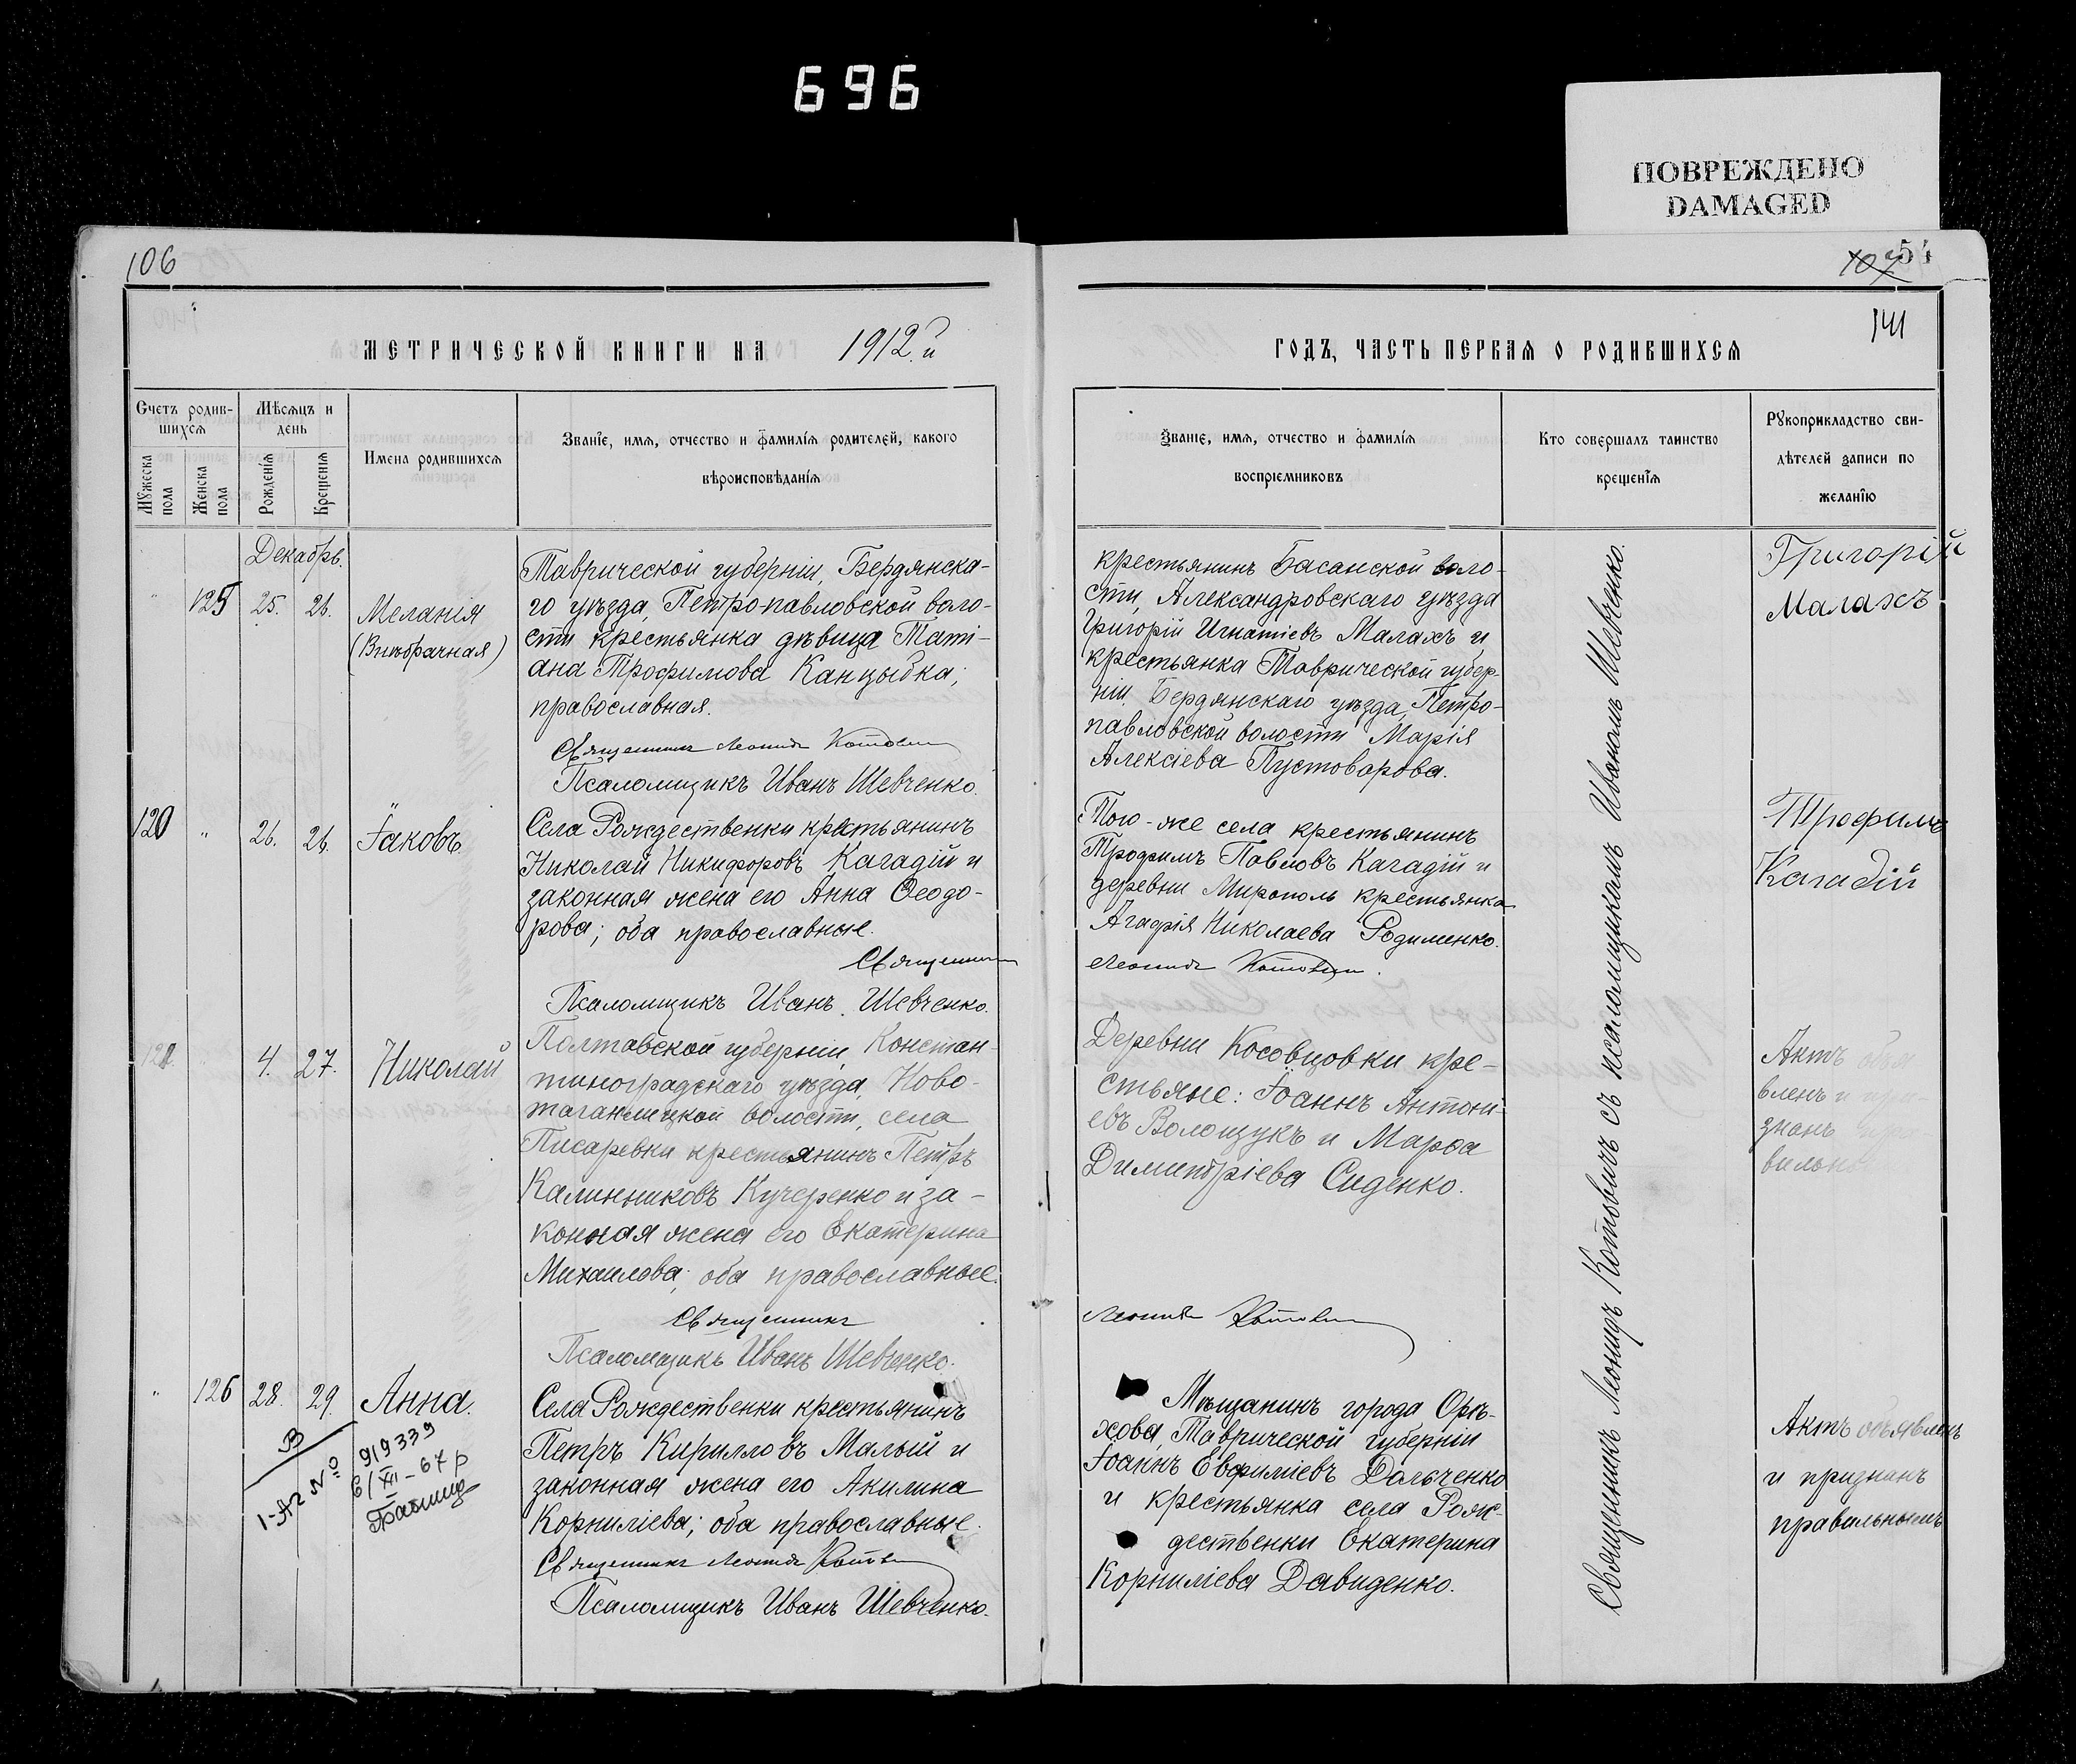 696
ПОВРЕЖДЕНО
DAMAGED
106
54
141
МЕТРИЧЕСКОЙ КНИГИ НА 1912.й
ГОДЪ, ЧАСТЬ ПЕРВАЯ О РОДИВШИХСЯ
Счетъ родив-
шихся
Мужеска пола
Женска пола
Мѣсяцъ и
день
Рожденія
Крещенія
Имена родившихся
Званіе, имя, отчество и фамилія родителей, какого
вѣроисповѣданія
Званіе, имя, отчество и фамилія
воспріемниковъ
Кто совершалъ таинство
крещенія
Рукоприкладство сви-
дѣтелей записи по
желанію
Декабрь.
125
25.
26.
Меланія
(Внѣбрачная)
Таврической губерніи, Бердянска-
го уѣзда, Петропавловской воло-
сти крестьянка дѣвица Таті-
ана Трофимова Канцыбка;
православная.
Священникъ Леонидъ Котовичъ
Псаломщикъ Иванъ Шевченко.
крестьянинъ Басанской воло-
сти, Александровскаго уѣзда
Григорій Игнатіевъ Малахъ и
крестьянка Таврической губер-
ніи, Бердянскаго уѣзда, Петро-
павловской волости Марія
Алексіева Пустоварова.
Григорій
Малахъ
120
"
26.
26.
Іаковъ
Села Рождественки крестьянинъ
Николай Никифоровъ Кагадій и
законная жена его Анна Ѳеодо-
рова; оба православные.
Священникъ
Псаломщикъ Иванъ Шевченко.
Того-же села крестьянинъ
Трофимъ Павловъ Кагадій и
деревни Мирополь крестьянка
Агафія Николаева Родименко.
Леонидъ Котовичъ.
Трофимъ
Кагадій
4.
27.
Николай
Полтавской губерніи, Констан-
тиноградскаго уѣзда, Ново-
таганлыцкой волости, села
Писаревки крестьянинъ Петръ
Калинниковъ Кучеренко и за-
конная жена его Екатерина
Михаилова; оба православные.
Священникъ
Псаломщикъ Иванъ Шевченко.
Деревни Косовцовки кре-
стьяне: Іоаннъ Антоні-
евъ Волощукъ и Марѳа
Димитріева Сиденко.
Леонидъ Котовичъ
Актъ объя
вленъ и при-
знанъ пра-
вильны
"
126
28.
29.
Анна.
В
1-АГ № 919339
6/XII-67 р
Села Рождественки крестьянинъ
Петръ Кирилловъ Малый и
законная жена его Акилина
Корниліева; оба православные.
Священникъ Леонидъ Котовичъ
Псаломщикъ Иванъ Шевченко.
Мѣщанинъ города Орѣ-
хова, Таврической губерніи
Іоаннъ Евфиміевъ Дольченко
и крестьянка села Рож-
дественки Екатерина
Корниліева Давиденко.
Актъ объявленъ
и признанъ
правильнымъ
Священникъ Леонидъ Котовичъ съ псаломщикомъ Иваномъ Шевченко.